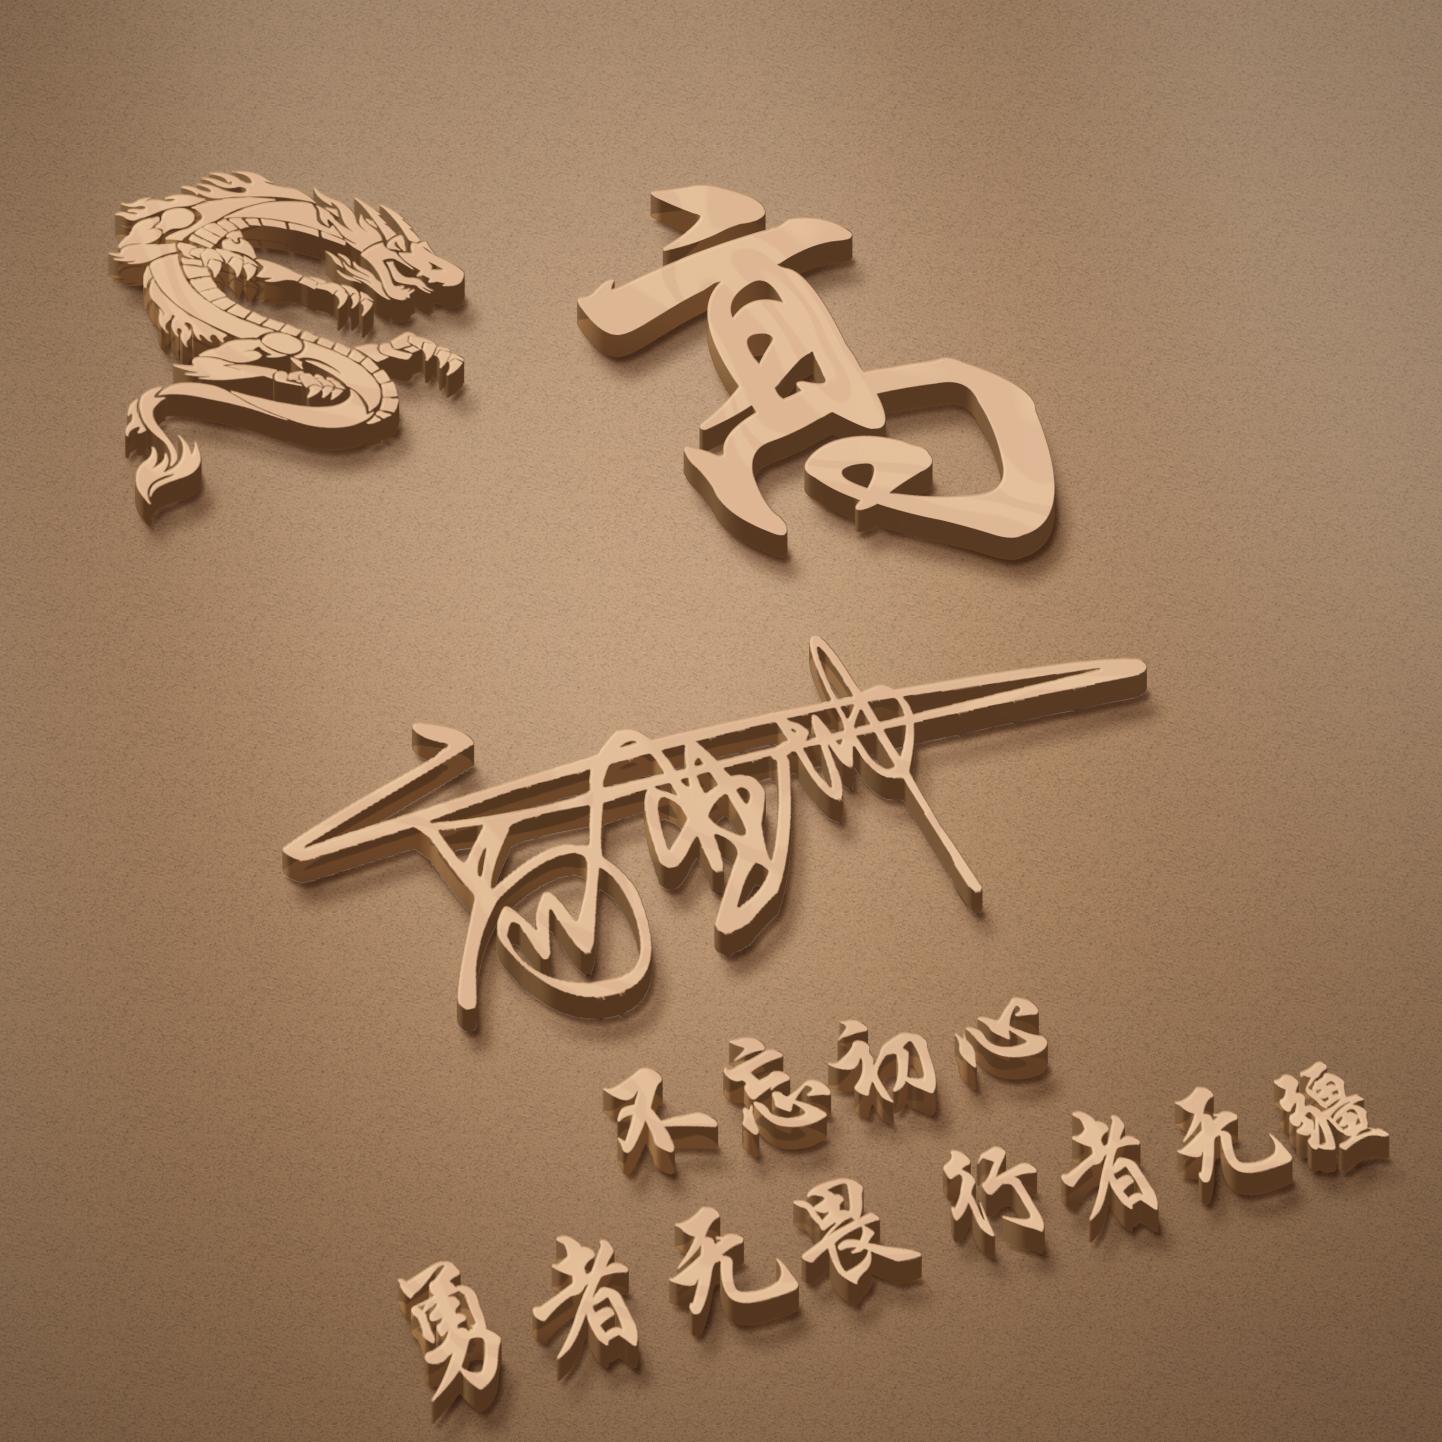 高
不忘初心
勇者无畏 行者无疆